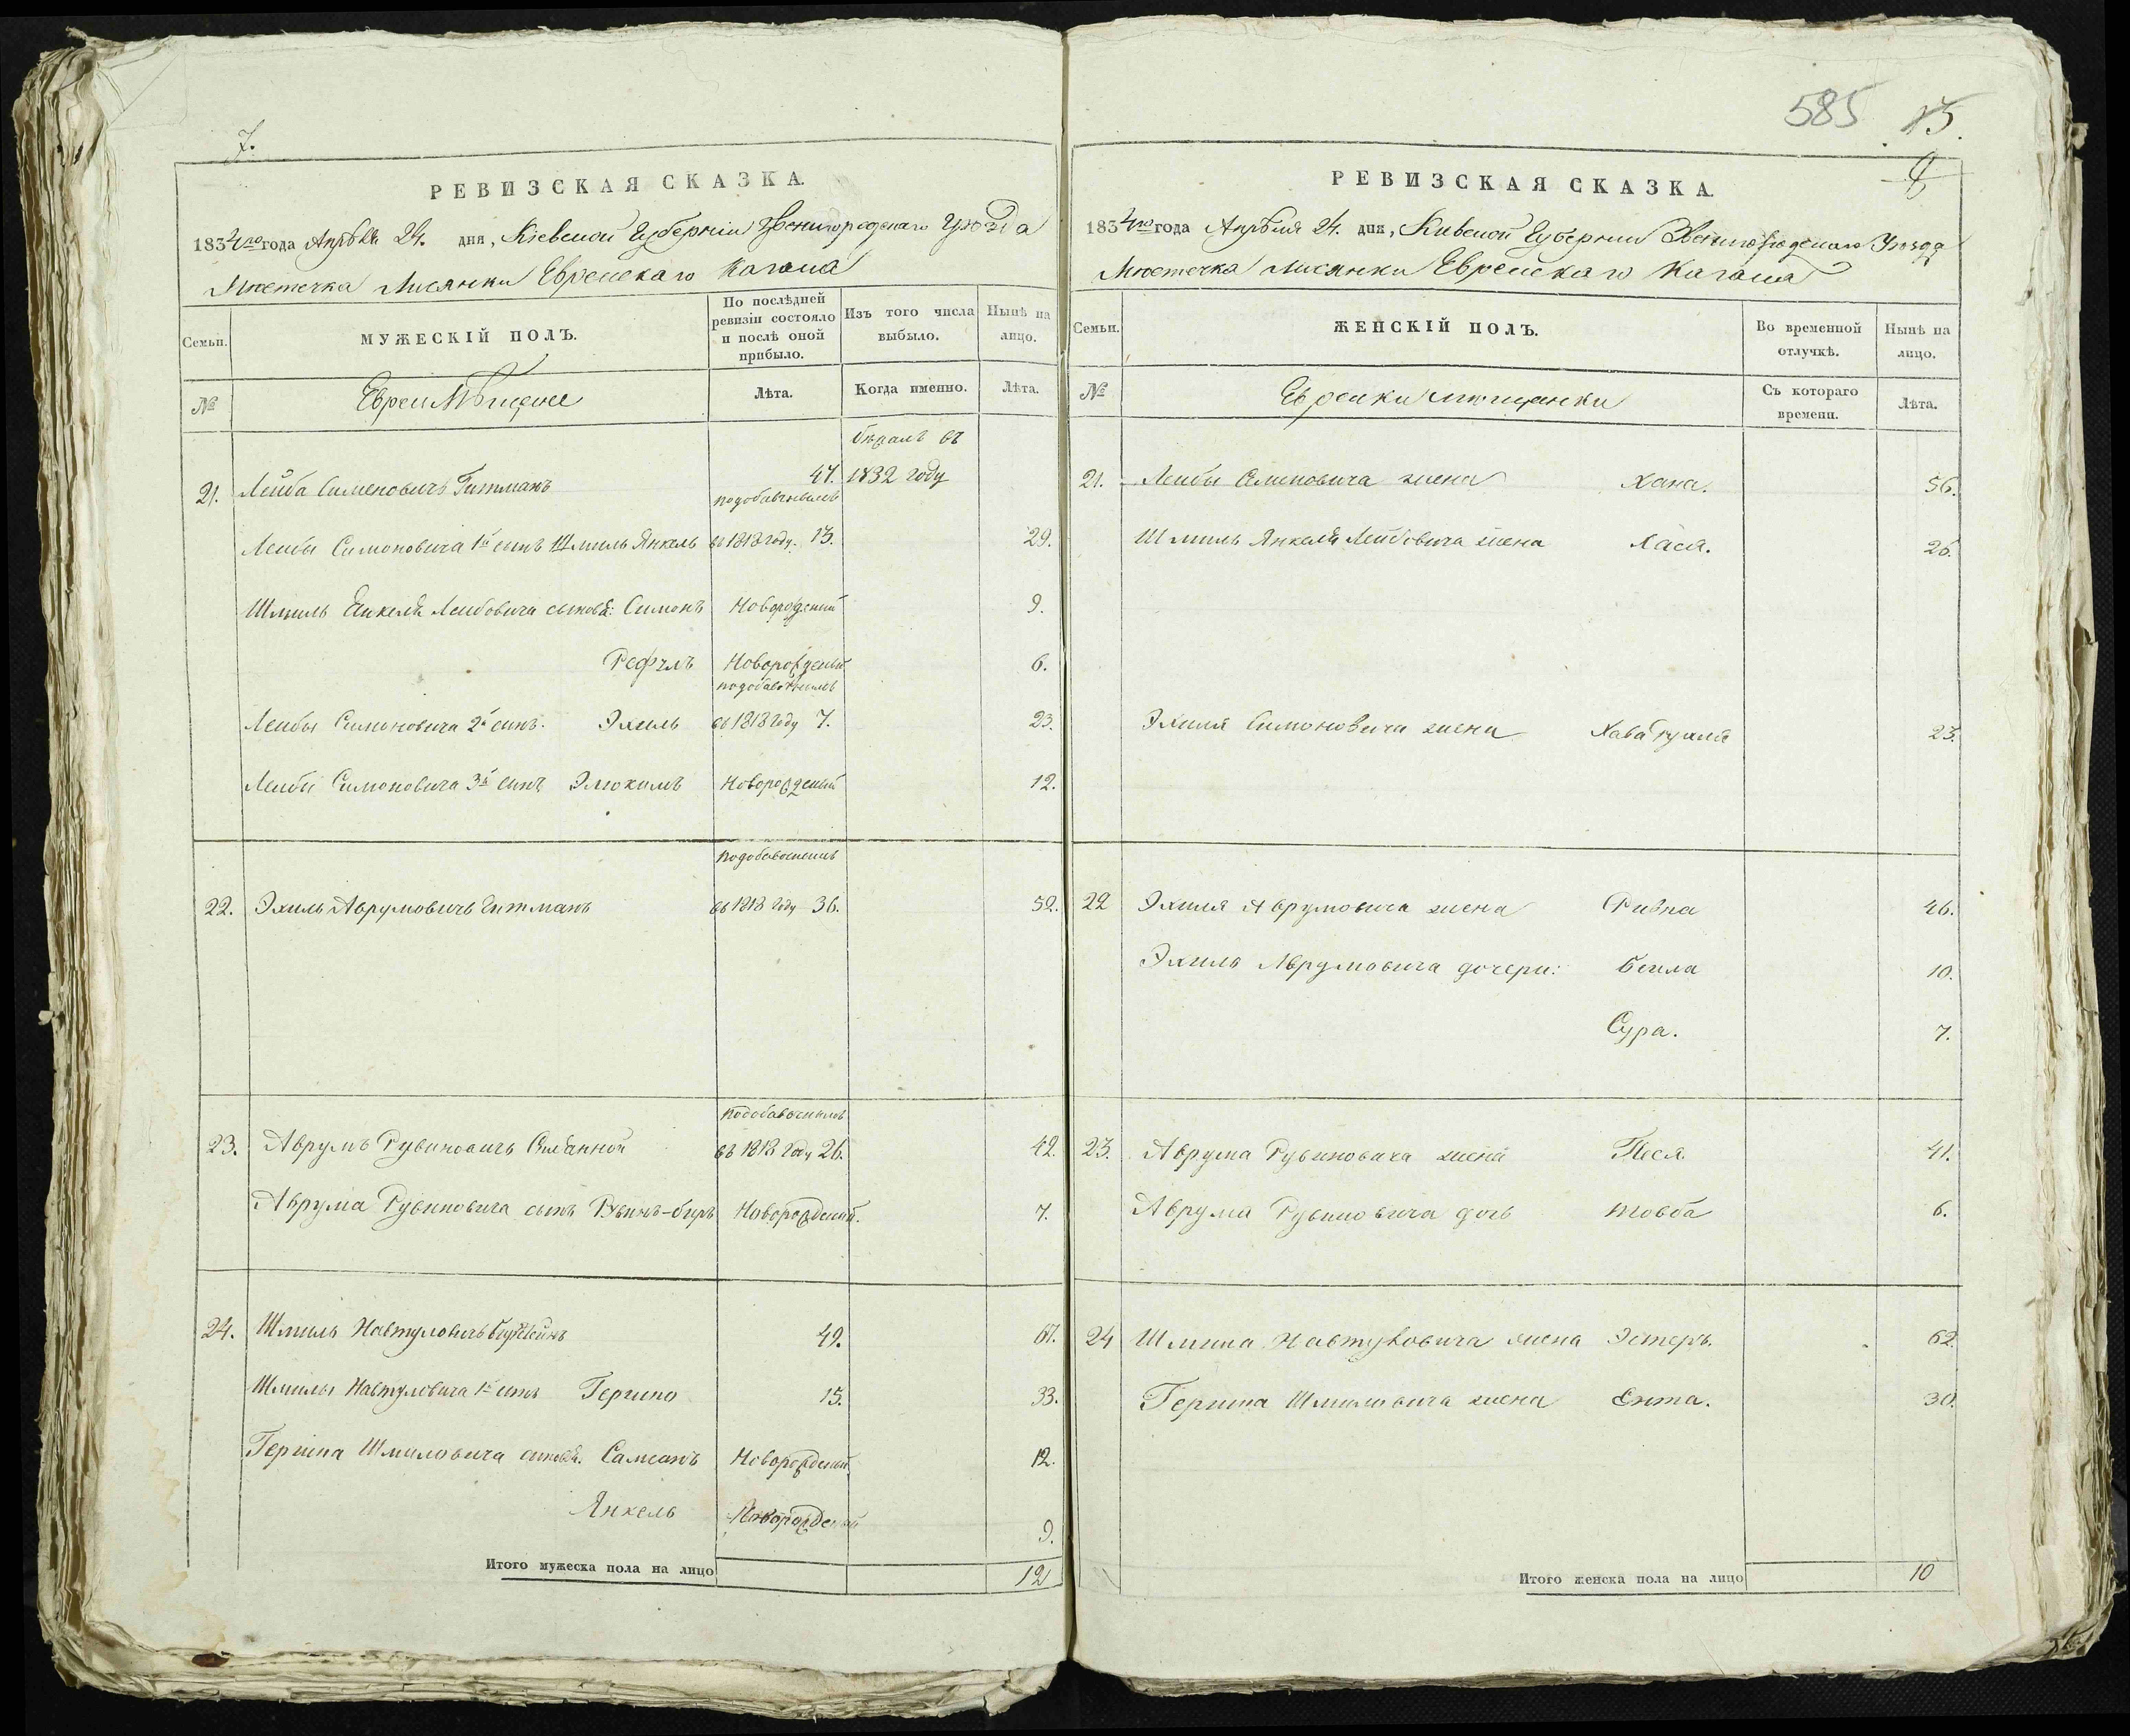 7.
РЕВИЗСКАЯ СКАЗКА.
1834го года Апрѣля 24. дня, Кіевской Губерніи Звенигородскаго Уѣзда
Мѣстечка Лисянки Еврейскаго Кагала
Семьи.
МУЖЕСКІЙ ПОЛЪ.
По послѣдней ревизіи состояло и послѣ оной прибыло.
Изъ того числа выбыло.
Нынѣ на лицо.
№
Евреи Мѣщане
Лѣта.
Когда именно.
Лѣта.
21. Лейба Симоновичъ Гитманъ 47. въ 1832 году
Лейбы Симоновича 1й сынъ Шмиль Янкель въ 1818 году. 13. 29.
Шмиль Янкеля Лейбовича сыновья: Симонъ Новорожденый 9.
Рефулъ Новорожденый 6.
Лейбы Симоновича 2й сынъ. Эхиль въ 1818 году 7. 23.
Лейбы Симоновича 3й сынъ Новорожденый 12.
22. Эхиль Аврумовичъ Гитманъ въ 1818 году 36. 52.
23. Аврумъ Рувиновичъ въ 1818 году 26. 42.
Аврума Рувиновича сынъ Новорожденый. 7.
24. Шмиль Навтуловичъ 49. 67.
Шмиля Навтуловича 1й сынъ Гершко 15. 33.
Гершка Шмиловича сыновья. Самсонъ Новорожденый 12.
Янкель Новорожденый 9.
Итого мужеска пола на лицо 12
585 15.
8
РЕВИЗСКАЯ СКАЗКА.
1834го года Апрѣля 24. дня, Кіевской Губерніи Звенигородскаго Уѣзда
Мѣстечка Лисянки Еврейскаго Кагала
Семьи.
ЖЕНСКІЙ ПОЛЪ.
Во временной отлучкѣ.
Нынѣ на лицо.
№
Еврейки мѣщанки
Съ котораго времени.
Лѣта.
21. Лейбы Симоновича жена Хана. 56.
Шмиль Янкеля Лейбовича жена Хася. 26.
Эхиля Симоновича жена Хава 23.
22 Эхиля Аврумовича жена Ривка 46.
Эхиля Аврумовича дочери: Бейла 10.
Сура. 7.
23. Аврума Рувиновича жена Песя. 41.
Аврума Рувиновича дочь Товба 6.
24 Шмиля Навтуловича жена Эстеръ. 62.
Гершка Шмиловича жена Ента. 30.
Итого женска пола на лицо 10